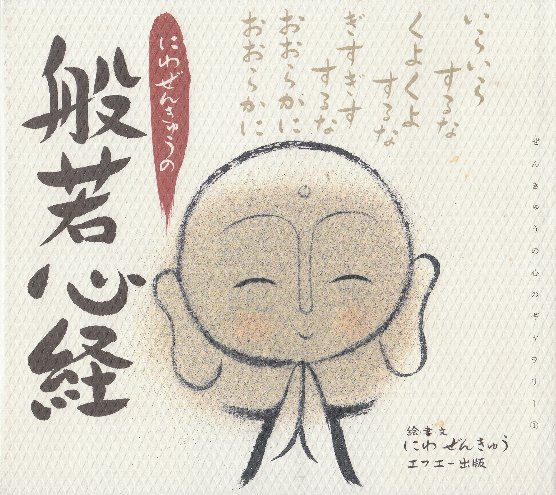 いらいら
するな
くよくよ
するな
ぎすぎす
するな
おおらかに
おおらかに
にわぜんきゅうの
般若心経
ぜんきゅうの心のギャラリー①
絵・書・文
にわぜんきゅう
エフエー出版